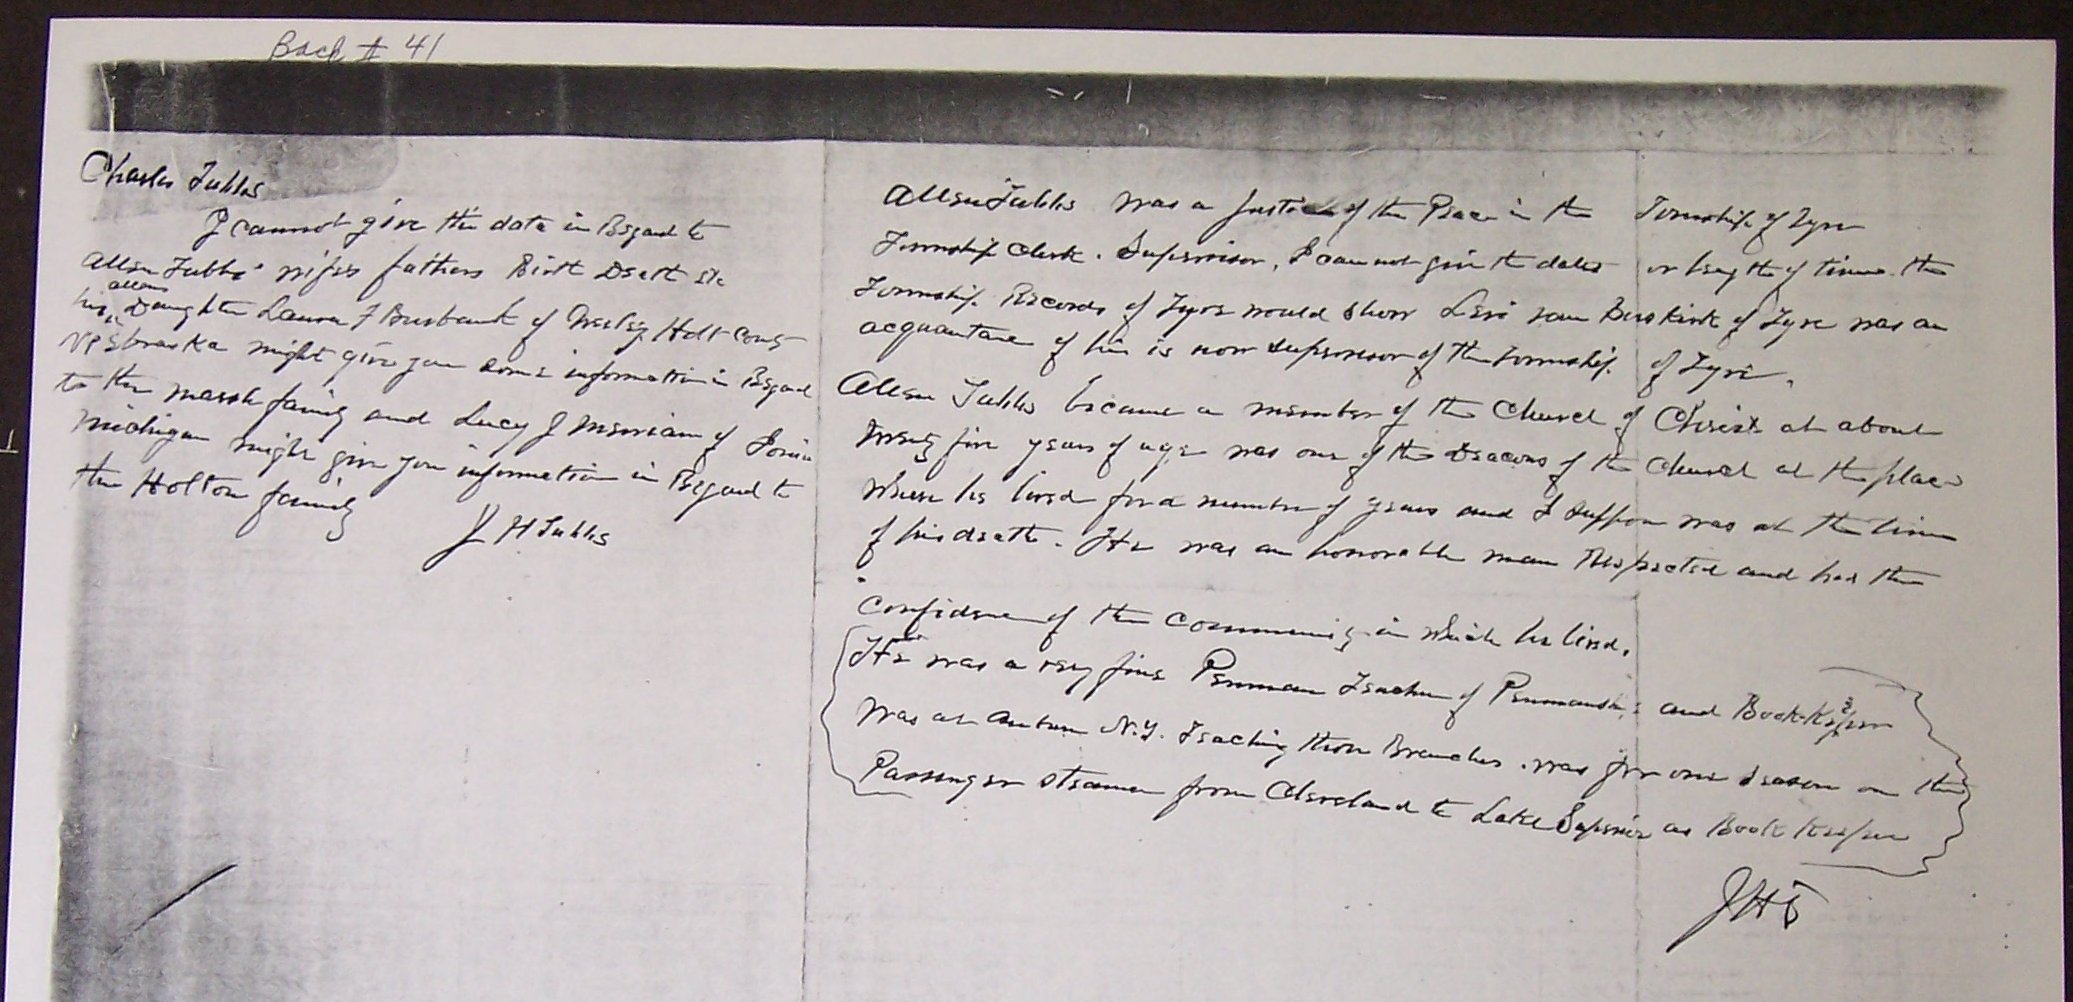 Back # 41
Charles Tubbs
I cannot give the data in Regard to
Allen Tubbs' wifes fathers Birth Death etc
allens
his Daughter Laura J Burbank of Wesley Holt County
Nebraska might give you some information in Regard
to the Marsh family and Lucy J Merriam of Ionia
Michigan might give you information in Regard to
the Holton family
J H Tubbs
Allen Tubbs was a Justice of the Peace in the Township of Tyre
Township Clerk. Supervisor, I can not give the dates or length of time. the
Township Records of Tyre would show Levi van Buskirk of Tyre was an
acquantance of his is now supervisor of the township of Tyre.
Allen Tubbs became a member of the Church of Christ at about
twenty five years of age was one of the Deacons of the Church at the place
where he lived for a number of years and I suppose was at the time
of his death. He was an honorable man Respected and had the
confidence of the community in which he lived.
He was a very fine Penman Teacher of Penmanship and Book-Keeper
was at Auburn N.Y. Teaching those Branches. was for one season on the
Passenger steamer from Cleveland to Lake Superior as Book Keeper
JHT